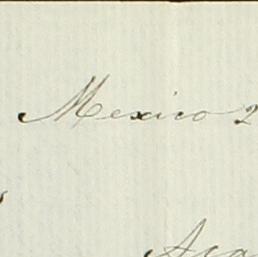 Mexico 2